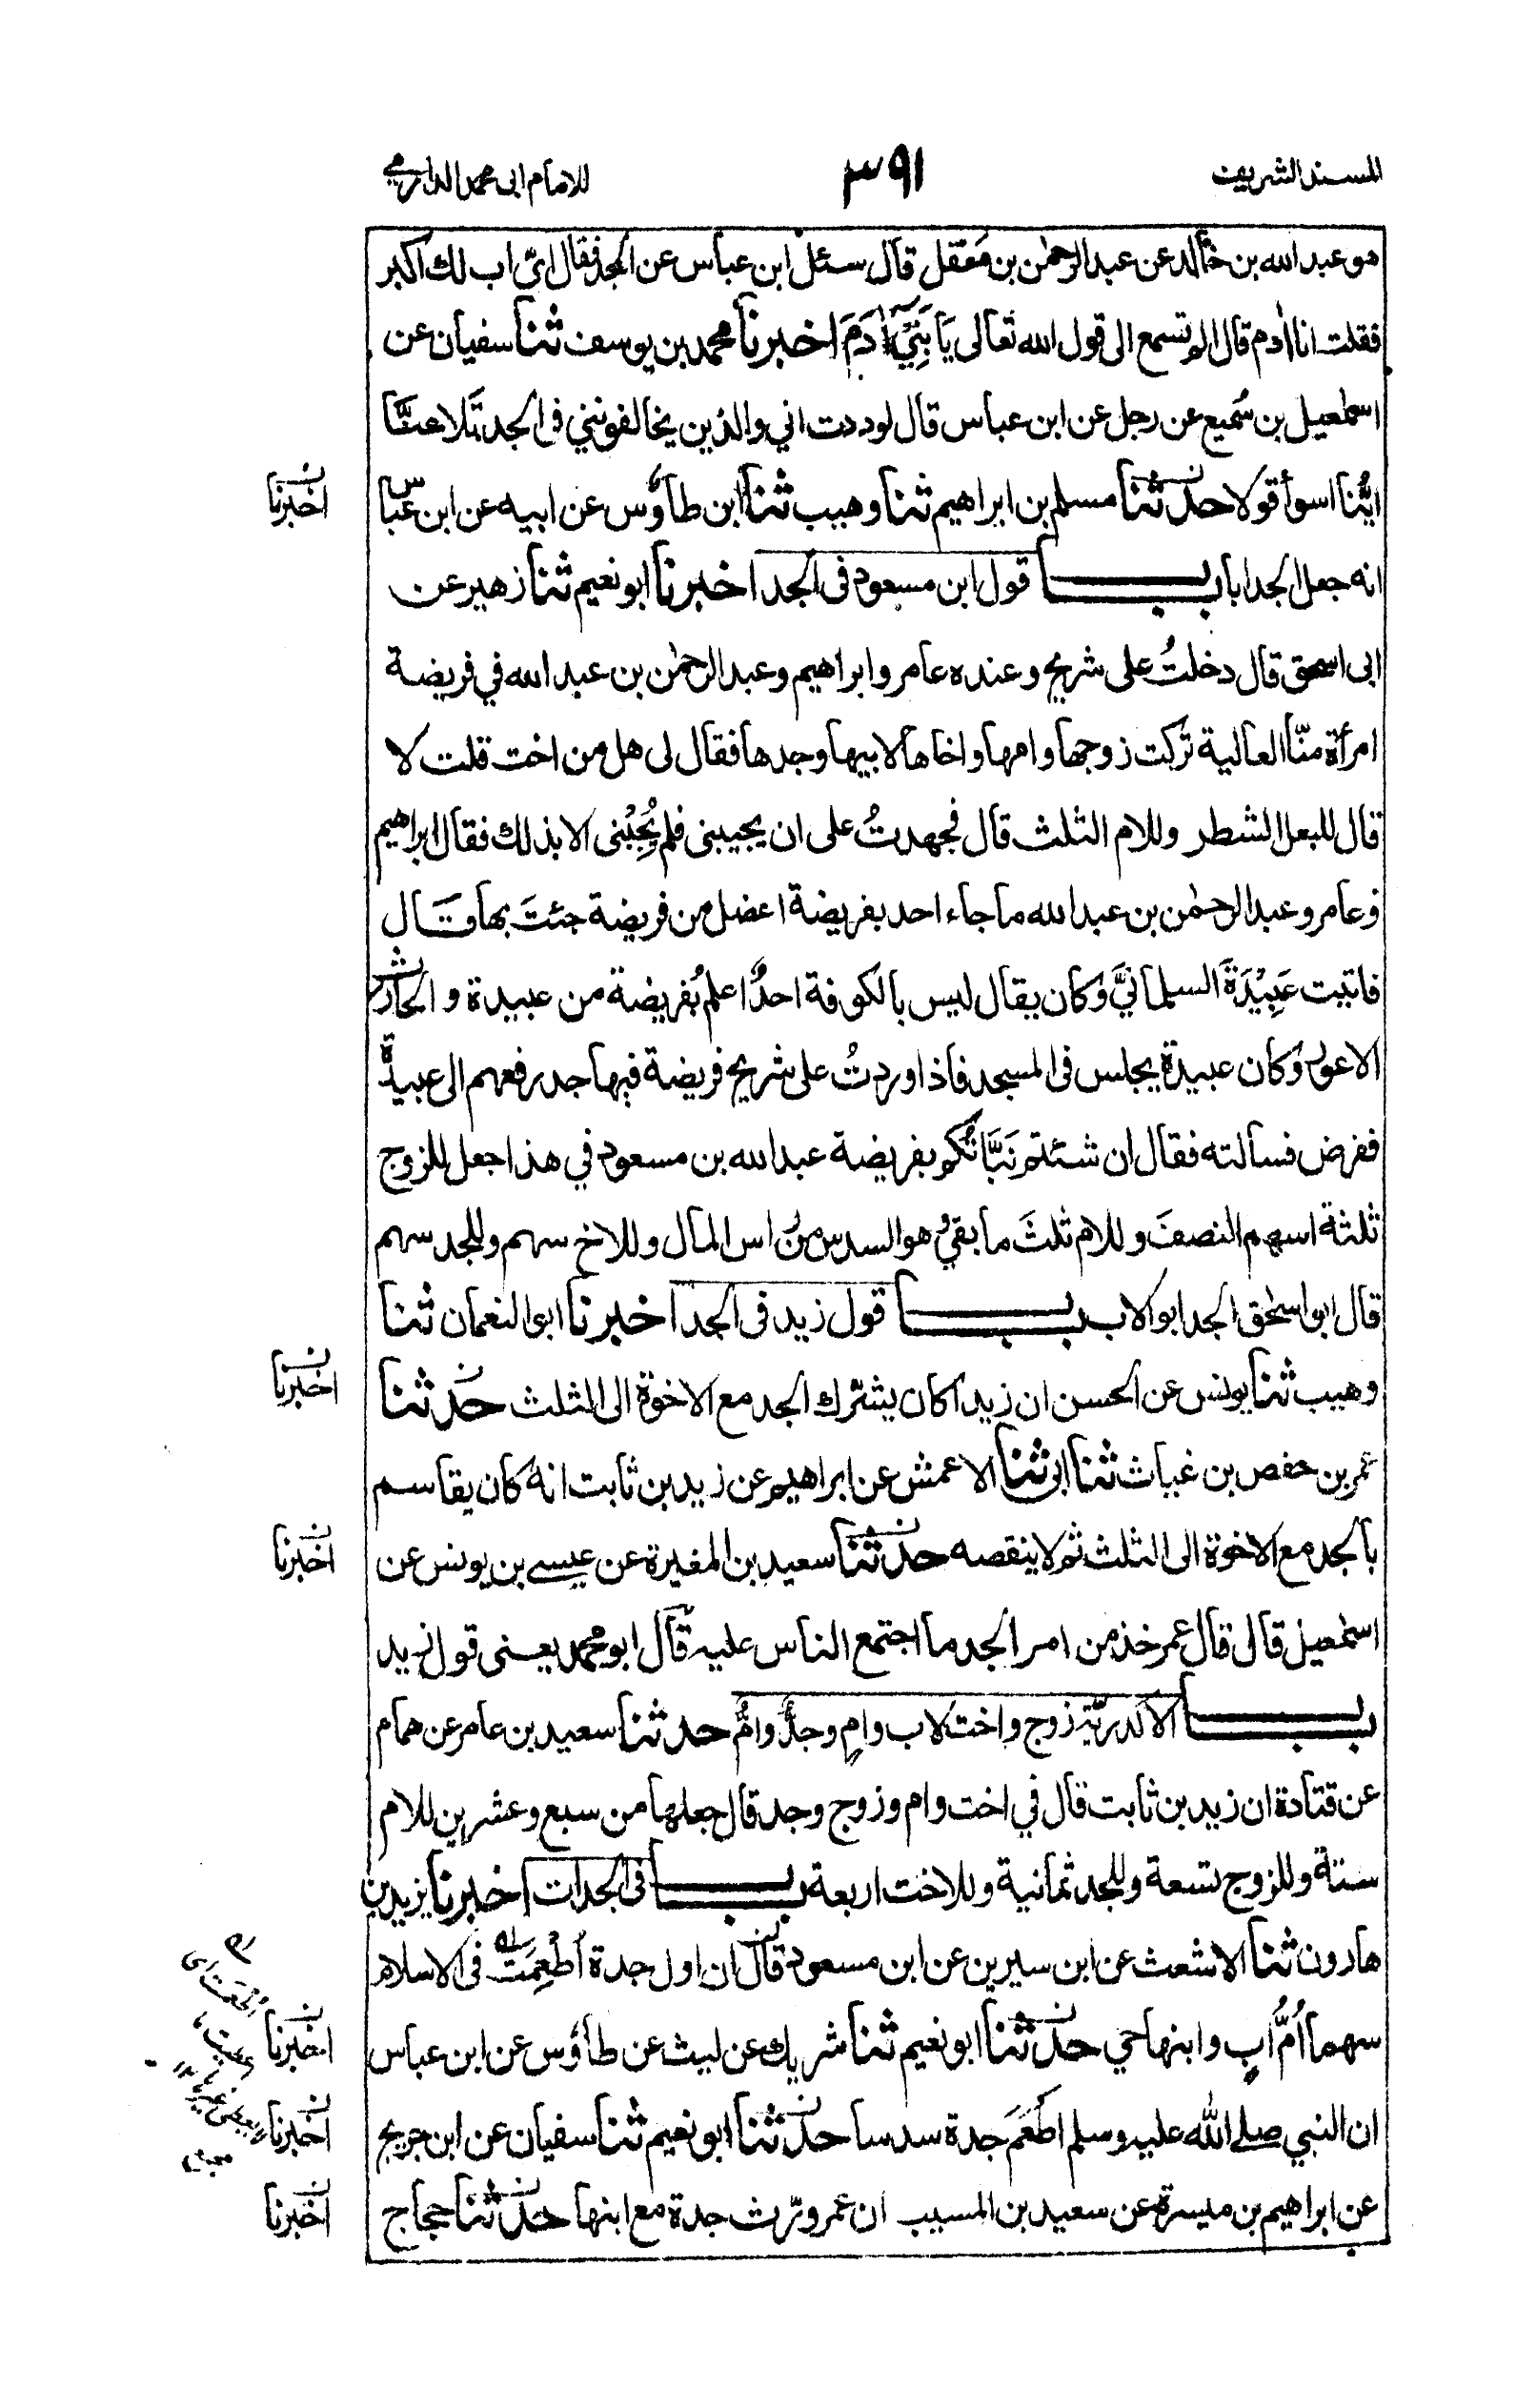 المسند الشريف ٣٩١ للامام ابى محمد الدارمي
هو عبد الله بن خالد عن عبد الرحمٰن بن مَعقل قال سئل ابن عباس عن الجد فقال ايّ اب لك اكبر
فقلت انا اٰدم قال الم تسمع الى قول الله تعالى يَا بَنِيٓ اٰدَمَ اخبرنا محمد بن يوسف ثنا سفيان عن
اسمٰعيل بن سُميع عن رجل عن ابن عباس قال لوددت اني والذين يخالفونني فى الجد تَلاعنّا
ايُّنا اسوأ قولا حدثنا مسلم بن ابراهيم ثنا وهيب ثنا ابن طاؤس عن ابيه عن ابن عباس
اخبرنا
انه جعل الجد ابا باب قول ابن مسعود فى الجد اخبرنا ابو نعيم ثنا زهير عن
ابى اسحٰق قال دخلتُ على شريح وعنده عامر وابراهيم وعبد الرحمٰن بن عبد الله في فريضة
امرأة منّا العالية تركت زوجها وامها واخاها لابيها وجدها فقال لى هل من اخت قلت لا
قال للبعل الشطر وللام الثلث قال فجهدتُ على ان يجيبنى فلم يُجِبْنى الا بذلك فقال ابراهيم
وعامر وعبد الرحمٰن بن عبد الله ما جاء احد بفريضة اعضل من فريضة جئتَ بها قال
فاتيت عَبِيْدَةَ السلمانيَّ وكان يقال ليس بالكوفة احدٌ اعلم بفريضة من عبيدة والحارث
الاعور وكان عبيدة يجلس فى المسجد فاذا وردتُ على شريح فريضة فيها جد رفعهم الى عبيدة
ففرض فسألته فقال ان شئتم نَبَّأتُكم بفريضة عبد الله بن مسعود في هذا جعل للزوج
ثلثة اسهم النصفَ وللام ثلثَ ما بقي وهو السدس من رأس المال وللاخ سهم وللجد سهم
قال ابو اسحٰق الجد ابو الاب باب قول زيد فى الجد اخبرنا ابو النعمان ثنا
وهيب ثنا يونس عن الحسن ان زيدا كان يشرّك الجد مع الاخوة الى الثلث حدثنا
اخبرنا
عمر بن حفص بن غياث ثنا ابى ثنا الاعمش عن ابراهيم عن زيد بن ثابت انه كان يقاسم
بالجد مع الاخوة الى الثلث ثم لا ينقصه حدثنا سعيد بن المغيرة عن عيسى بن يونس عن
اخبرنا
اسمٰعيل قال قال عمر خذ من امر الجد ما اجتمع الناس عليه قال ابو محمد يعنى قول زيد
باب الاكدريّة زوج واخت لاب وامٍ وجدٌّ وامٌّ حدثنا سعيد بن عامر عن همام
عن قتادة ان زيد بن ثابت قال في اخت وام وزوج وجد قال جعلها من سبع وعشرين للام
ستة وللزوج تسعة وللجد ثمانية وللاخت اربعة باب فى الجدات اخبرنا يزيد بن
هارون ثنا الاشعث عن ابن سيرين عن ابن مسعود قال ان اول جدة اُطْعِمَتْ فى الاسلام
سهما اُمُّ ابٍ وابنها حي حدثنا ابو نعيم ثنا شريك عن ليث عن طاؤس عن ابن عباس
اخبرنا
ان النبي صلى الله عليه وسلم اطعَمَ جدة سدسا حدثنا ابو نعيم ثنا سفيان عن ابن جريج
اخبرنا
عن ابراهيم بن ميسرة عن سعيد بن المسيب ان عمر ورّث جدة مع ابنها حدثنا حجاج
اخبرنا